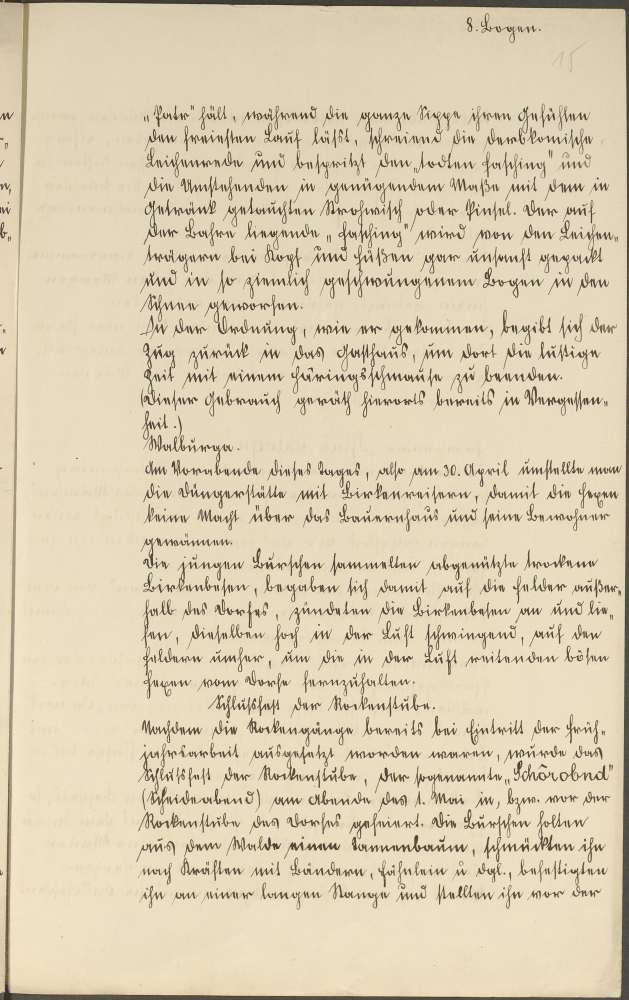 8. Bogen.
15
„Patr" hält, während die ganze Sippe ihren Gefühlen
den freiesten Lauf läßt, schreiend die derbkomische
Leichenrede und bespritzt den „todten Fasching" und
die Umstehenden in genügendem Maße mit dem in
Getränk getauchten Strohwisch oder Pinsel. Der auf
der Bahre liegende „Fasching" wird von den Leichen-
trägern bei Kopf und Füßen gar unsanft gepackt
und in so ziemlich geschwungenem Bogen in den
Schnee geworfen.
In der Ordnung, wie er gekommen, begibt sich der
Zug zurück in das Gasthaus, um dort die lustige
Zeit mit einem Häringsschmause zu beenden.
(Dieser Gebrauch geräth hierorts bereits in Vergessen-
heit.)
Walburga.
Am Vorabende dieses Tages, also am 30. April umstellte man
die Düngerstätte mit Birkenreisern, damit die Hexen
keine Macht über das Bauernhaus und seine Bewohner
gewännen.
Die jungen Burschen sammelten abgenützte trockene
Birkenbesen, begaben sich damit auf die Felder außer-
halb des Dorfes, zündeten die Birkenbesen an und lie-
fen, dieselben hoch in der Luft schwingend, auf den
Feldern umher, um die in der Luft reitenden bösen
Hexen vom Dorfe fernzuhalten.
Schlußfest der Rockenstube.
Nachdem die Rockengänge bereits bei Eintritt der Früh-
jahrsarbeit ausgesetzt worden waren, wurde das
Schlußfest der Rockenstube, der sogenannte „Schôrobnd"
(Scheideabend) am Abende des 1. Mai in, bzw. vor der
Rockenstube des Dorfes gefeiert. Die Burschen holten
aus dem Walde einen Tannenbaum, schmückten ihn
nach Kräften mit Bändern, Fähnlein u dgl., befestigten
ihn an einer langen Stange und stellten ihn vor der